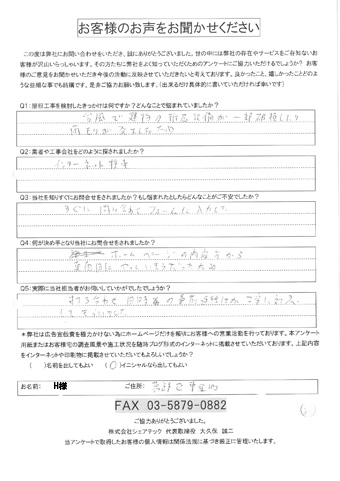 お客様のお声をお聞かせください
この度は弊社にお問い合わせをいただき、誠にありがとうございました。世の中には弊社の存在やサービスをご存知ないお
客様が沢山いらっしゃいます。その方たちに弊社をよく知っていただくためのアンケートにご協力いただけるでしょうか?　お客
様のご意見をお聞かせいただき今後の活動に反映させていただきたいと考えております。良かったこと、嬉しかったことどのよ
うな些細な事でも結構です。是非ご協力お願い致します。（出来るだけ具体的に書いていただければ幸いです）
Q1:屋根工事を検討したきっかけは何ですか?どんなことで悩まれていましたか?
台風で建物の が一部破損したり
雨もりが発生したため
Q2:業者や工事会社をどのように探されましたか?
インターネット検索
Q3:当社を知りすぐにお問合せをされましたか?もし悩まれたとしたらどんなことがご不安でしたか?
すぐに問い合わせフォームに入力した
Q4:何が決め手となり当社にお問合せをされましたか?
ホームページの内容から
真面目に だったため
Q5:実際に当社担当者がお伺いしていかがでしたでしょうか?
打ち合わせ
＊弊社は広告宣伝費を極力かけない為にホームページだけを頼りにお客様への営業活動を行っております。本アンケート
用紙またはお客様宅の調査風景や施工状況を随時ブログ形式のインターネットに掲載させていただいております。上記内容
をインターネットや印刷物に掲載させていただいてもよろしいでしょうか?
（　）名前を出してもよい　（〇）イニシャルなら出してもよい
お名前:　H様　ご住所:
FAX 03-5879-0882
ご協力ありがとうございました。
株式会社シェアテック　代表取締役　大久保　誠二
当アンケートで取得したお客様の個人情報は関係法規に基づき厳正に管理いたします。